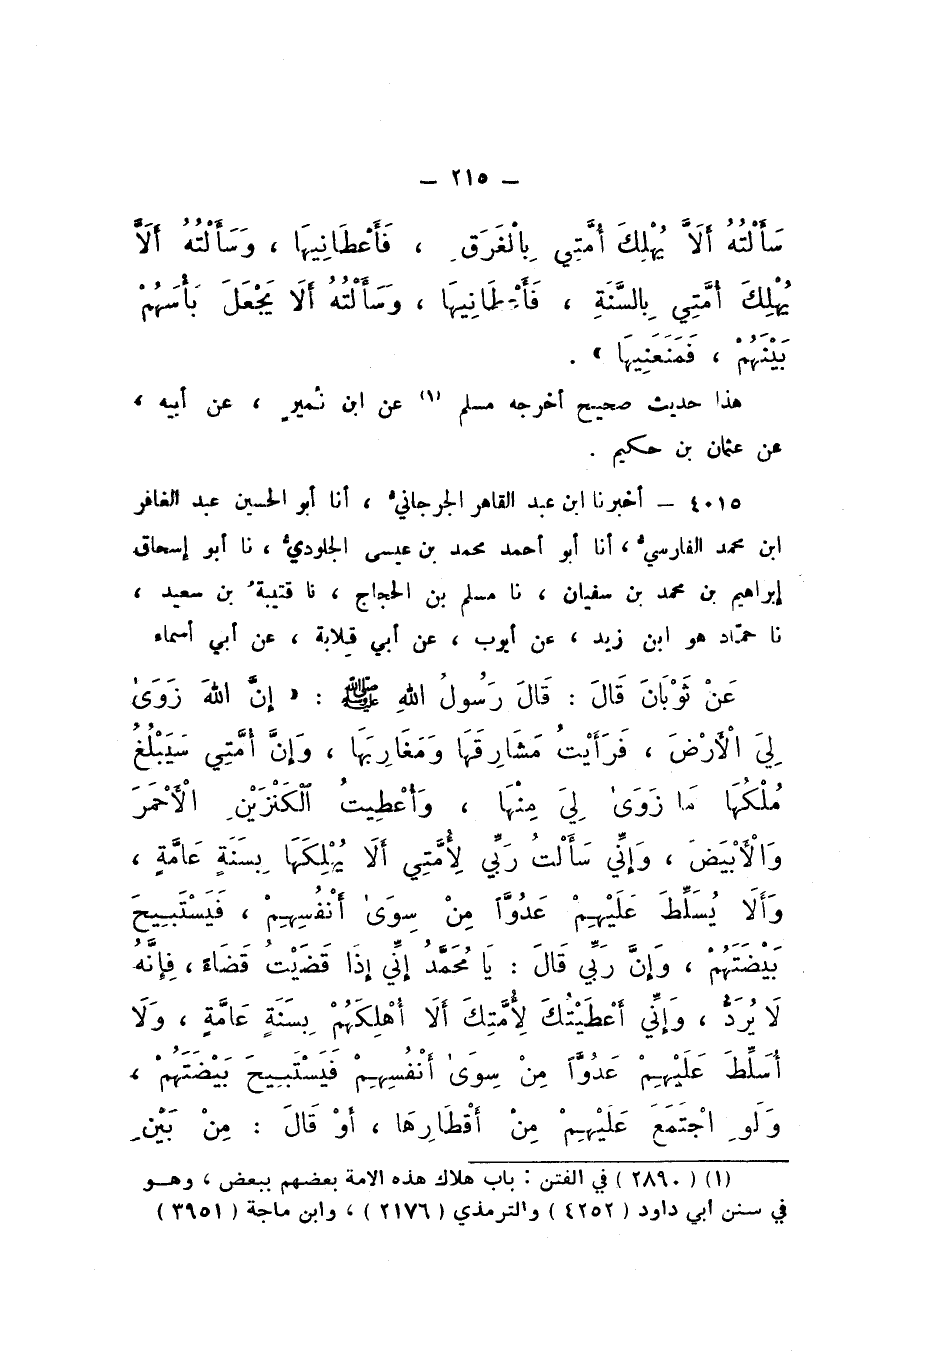 – ٢١٥ –
سَأَلْتُهُ أَلاَّ يُهْلِكَ أُمَّتِي بِالْغَرَقِ ، فَأَعْطَانِيهَا ، وَسَأَلْتُهُ أَلاَّ
يُهْلِكَ أُمَّتِي بِالسَّنَةِ ، فَأَعْطَانِيهَا ، وَسَأَلْتُهُ أَلَا يَجْعَلَ بَأْسَهُمْ
بَيْنَهُمْ ، فَمَنَعَنِيهَا » .
هذا حديث صحيح أخرجه مسلم (١) عن ابن نُميرٍ ، عن أبيه ،
عن عثمان بن حكيم .
٤٠١٥ – أخبرنا ابن عبد القاهر الجرجانيُّ ، أنا أبو الحسين عبد الغافر
ابن محمد الفارسيُّ ، أنا أبو أحمد محمد بن عيسى الجلوديُّ ، نا أبو إسحاق
إبراهيم بن محمد بن سفيان ، نا مسلم بن الحجاج ، نا قتيبةُ بن سعيد ،
نا حمّاد هو ابن زيد ، عن أيوب ، عن أبي قِلابة ، عن أبي أسماء
عَنْ ثَوْبَانَ قَالَ : قَالَ رَسُولُ اللهِ ﷺ : « إِنَّ اللهَ زَوَىٰ
لِيَ الْأَرْضَ ، فَرَأَيْتُ مَشَارِقَهَا وَمَغَارِبَهَا ، وَإِنَّ أُمَّتِي سَيَبْلُغُ
مُلْكُهَا مَا زَوَىٰ لِيَ مِنْهَا ، وَأُعْطِيتُ الْكَنْزَيْنِ الْأَحْمَرَ
وَالْأَبْيَضَ ، وَإِنِّي سَأَلْتُ رَبِّي لِأُمَّتِي أَلَا يُهْلِكَهَا بِسَنَةٍ عَامَّةٍ ،
وَأَلَا يُسَلِّطَ عَلَيْهِمْ عَدُوَّاً مِنْ سِوَىٰ أَنْفُسِهِمْ ، فَيَسْتَبِيحَ
بَيْضَتَهُمْ ، وَإِنَّ رَبِّي قَالَ : يَا مُحَمَّدُ إِنِّي إِذَا قَضَيْتُ قَضَاءً ، فَإِنَّهُ
لَا يُرَدُّ ، وَإِنِّي أَعْطَيْتُكَ لِأُمَّتِكَ أَلَا أُهْلِكَهُمْ بِسَنَةٍ عَامَّةٍ ، وَلَا
أُسَلِّطَ عَلَيْهِمْ عَدُوَّاً مِنْ سِوَىٰ أَنْفُسِهِمْ فَيَسْتَبِيحَ بَيْضَتَهُمْ ،
وَلَوِ اجْتَمَعَ عَلَيْهِمْ مِنْ أَقْطَارِهَا ، أَوْ قَالَ : مِنْ بَيْنِ
(١) ( ٢٨٩٠ ) في الفتن : باب هلاك هذه الامة بعضهم ببعض ، وهو
في سنن أبي داود ( ٤٢٥٢ ) والترمذي ( ٢١٧٦ ) ، وابن ماجة ( ٣٩٥١ )